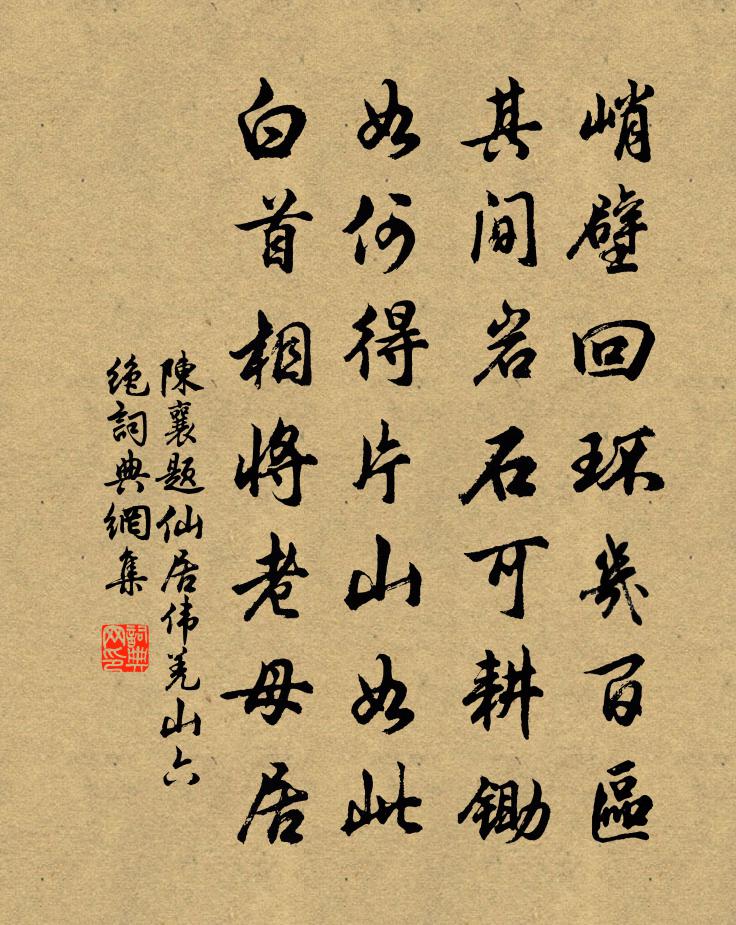 峭壁回环几百區
其间岩石可耕锄
如何得片山如此
白首相将老母居
陳襄题仙居伟羌山六
绝詞典網集
詞典网印